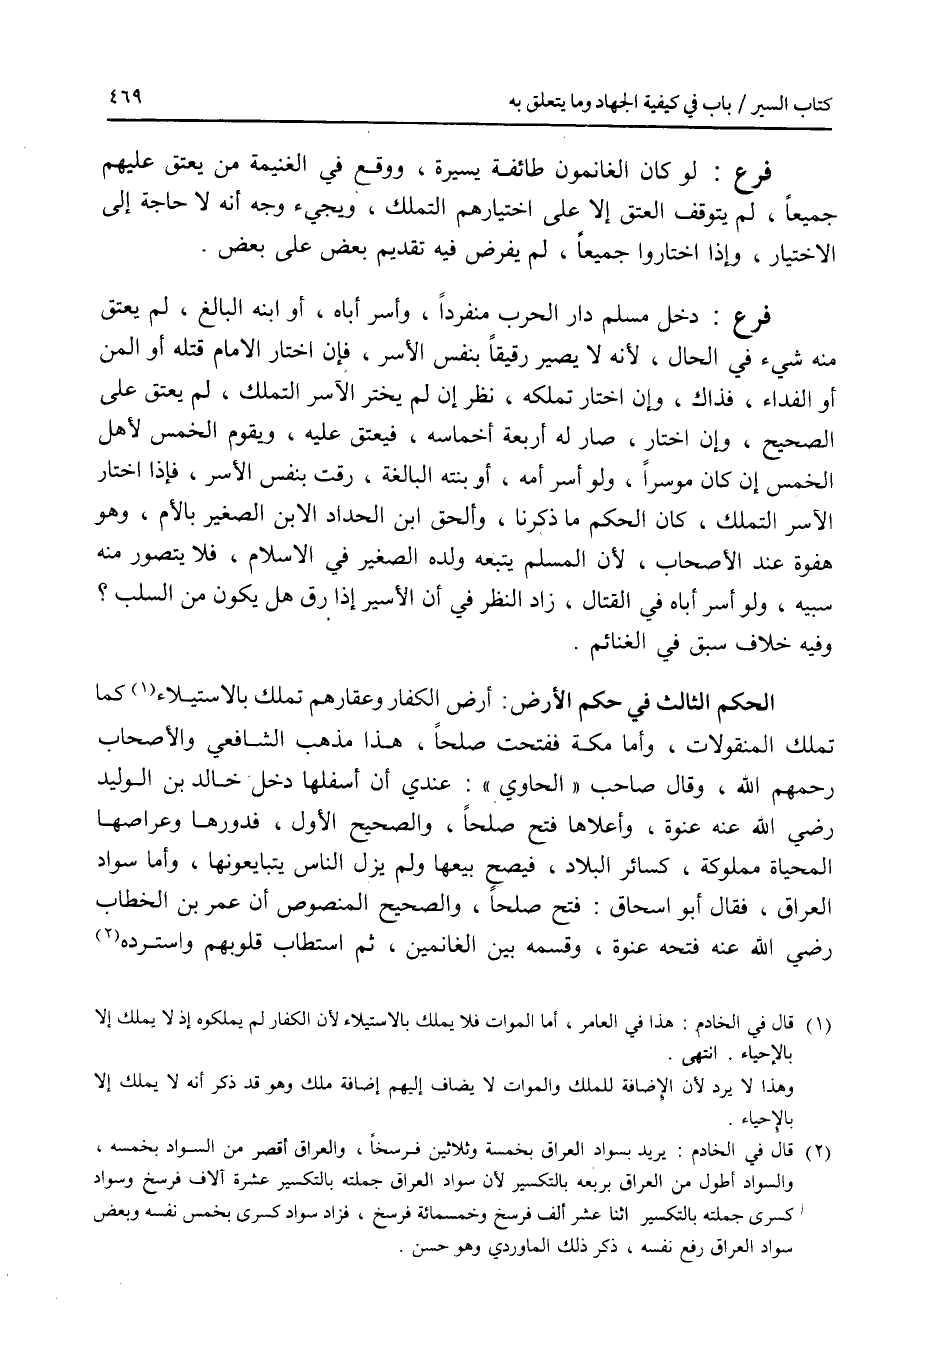 كتاب السير / باب في كيفية الجهاد وما يتعلق به ٤٦٩
فرع : لو كان الغانمون طائفة يسيرة ، ووقع في الغنيمة من يعتق عليهم
جميعاً ، لم يتوقف العتق إلا على اختيارهم التملك ، ويجيء وجه أنه لا حاجة إلى
الاختيار ، وإذا اختاروا جميعاً ، لم يفرض فيه تقديم بعض على بعض .
فرع : دخل مسلم دار الحرب منفرداً ، وأسر أباه ، أو ابنه البالغ ، لم يعتق
منه شيء في الحال ، لأنه لا يصير رقيقاً بنفس الأسر ، فإن اختار الامام قتله أو المن
أو الفداء ، فذاك ، وإن اختار تملكه ، نظر إن لم يختر الآسر التملك ، لم يعتق على
الصحيح ، وإن اختار ، صار له أربعة أخماسه ، فيعتق عليه ، ويقوم الخمس لأهل
الخمس إن كان موسراً ، ولو أسر أمه ، أو بنته البالغة ، رقت بنفس الأسر ، فإذا اختار
الآسر التملك ، كان الحكم ما ذكرنا ، وألحق ابن الحداد الابن الصغير بالأم ، وهو
هفوة عند الأصحاب ، لأن المسلم يتبعه ولده الصغير في الاسلام ، فلا يتصور منه
سبيه ، ولو أسر أباه في القتال ، زاد النظر في أن الأسير إذا رق هل يكون من السلب ؟
وفيه خلاف سبق في الغنائم .
الحكم الثالث في حكم الأرض : أرض الكفار وعقارهم تملك بالاستيلاء(١) كما
تملك المنقولات ، وأما مكة ففتحت صلحاً ، هذا مذهب الشافعي والأصحاب
رحمهم الله ، وقال صاحب « الحاوي » : عندي أن أسفلها دخل خالد بن الوليد
رضي الله عنه عنوة ، وأعلاها فتح صلحاً ، والصحيح الأول ، فدورها وعراصها
المحياة مملوكة ، كسائر البلاد ، فيصح بيعها ولم يزل الناس يتبايعونها ، وأما سواد
العراق ، فقال أبو اسحاق : فتح صلحاً ، والصحيح المنصوص أن عمر بن الخطاب
رضي الله عنه فتحه عنوة ، وقسمه بين الغانمين ، ثم استطاب قلوبهم واسترده(٢)
(١) قال في الخادم : هذا في العامر ، أما الموات فلا يملك بالاستيلاء لأن الكفار لم يملكوه إذ لا يملك إلا
بالإحياء . انتهى .
وهذا لا يرد لأن الإضافة للملك والموات لا يضاف إليهم إضافة ملك وهو قد ذكر أنه لا يملك إلا
بالإحياء .
(٢) قال في الخادم : يريد بسواد العراق بخمسة وثلاثين فرسخاً ، والعراق أقصر من السواد بخمسه ،
والسواد أطول من العراق بربعه بالتكسير لأن سواد العراق جملته بالتكسير عشرة آلاف فرسخ وسواد
كسرى جملته بالتكسير اثنا عشر ألف فرسخ وخمسمائة فرسخ ، فزاد سواد كسرى بخمس نفسه وبعض
سواد العراق رفع نفسه ، ذكر ذلك الماوردي وهو حسن .